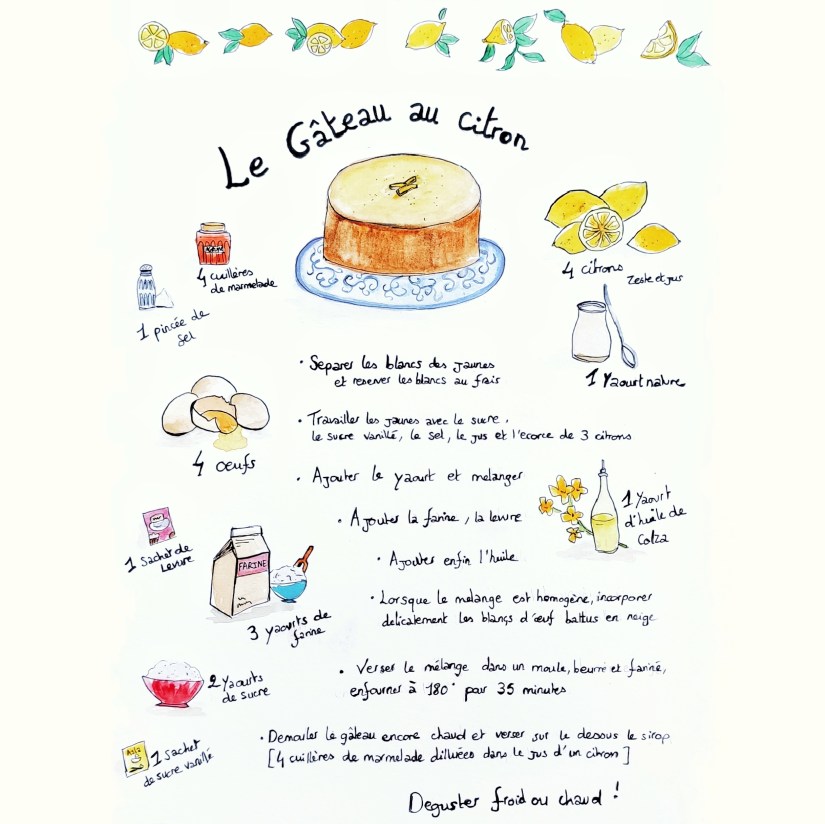 Le Gâteau au citron
4 cuillères
de marmelade
1 pincée de
sel
4 citrons
Zeste et jus
1 Yaourt nature
4 œufs
1 sachet de
Levure
FARINE
3 yaourts de
farine
2 Yaourts
de sucre
1 sachet
de sucre vanillé
1 Yaourt
d'huile de
Colza
• Séparer les blancs des jaunes
et reserver les blancs au frais
• Travailler les jaunes avec le sucre,
le sucre vanillé, le sel, le jus et l'ecorce de 3 citrons
• Ajouter le yaourt et melanger
• Ajouter la farine, la levure
• Ajouter enfin l'huile
• Lorsque le melange est homogène, incorporer
delicatement les blancs d'œuf battus en neige
• Verser le mélange dans un moule, beurré et fariné,
enfourner à 180° pour 35 minutes
• Demouler le gâteau encore chaud et verser sur le dessus le sirop
[4 cuillères de marmelade diluées dans le jus d'un citron]
Deguster froid ou chaud !